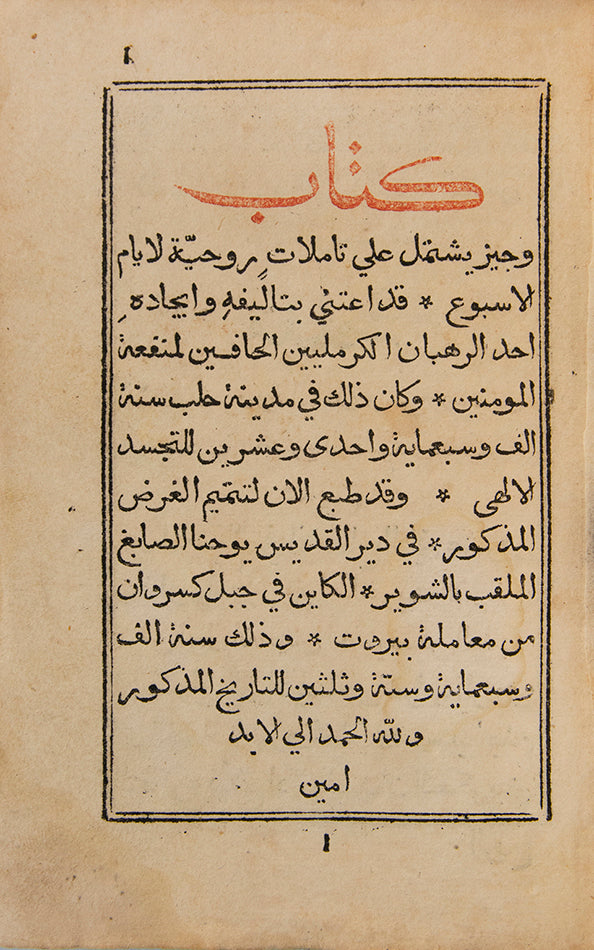 ١
كتاب
وجيز يشتمل علي تاملات روحيّة لايام
الاسبوع * قد اعتني بتاليفهِ وايجادهِ
احد الرهبان الكرمليين الحافيين لمنفعة
المومنين * وكان ذلك في مدينة حلب سنة
الف وسبعماية واحدى وعشرين للتجسد
الالهى * وقد طبع الان لتتميم الغرض
المذكور * في دير القديس يوحنا الصابغ
الملقب بالشوير * الكاين في جبل كسروان
من معاملة بيروت * وذلك سنة الف
وسبعماية وستة وثلثين للتاريخ المذكور
ولله الحمد الي الابد
امين
١